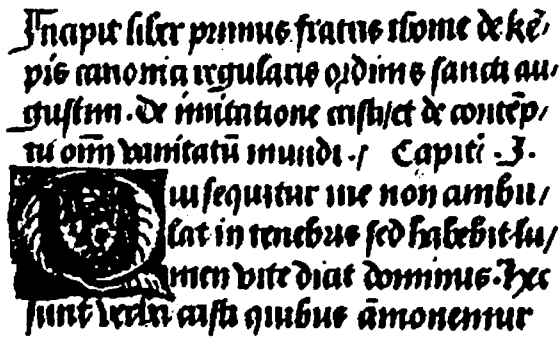 Incipit liber primus fratris thome de kē/
pis canonici regularis ordinis sancti au/
gustini. De imitatione cristi/et de contēp/
tu oīm vanitatū mundi ./ Capitĺ .I.
Qui sequitur me non ambu/
lat in tenebris sed habebit lu/
men vite dicit dominus. Hec
sunt verba cristi quibus āmonemur